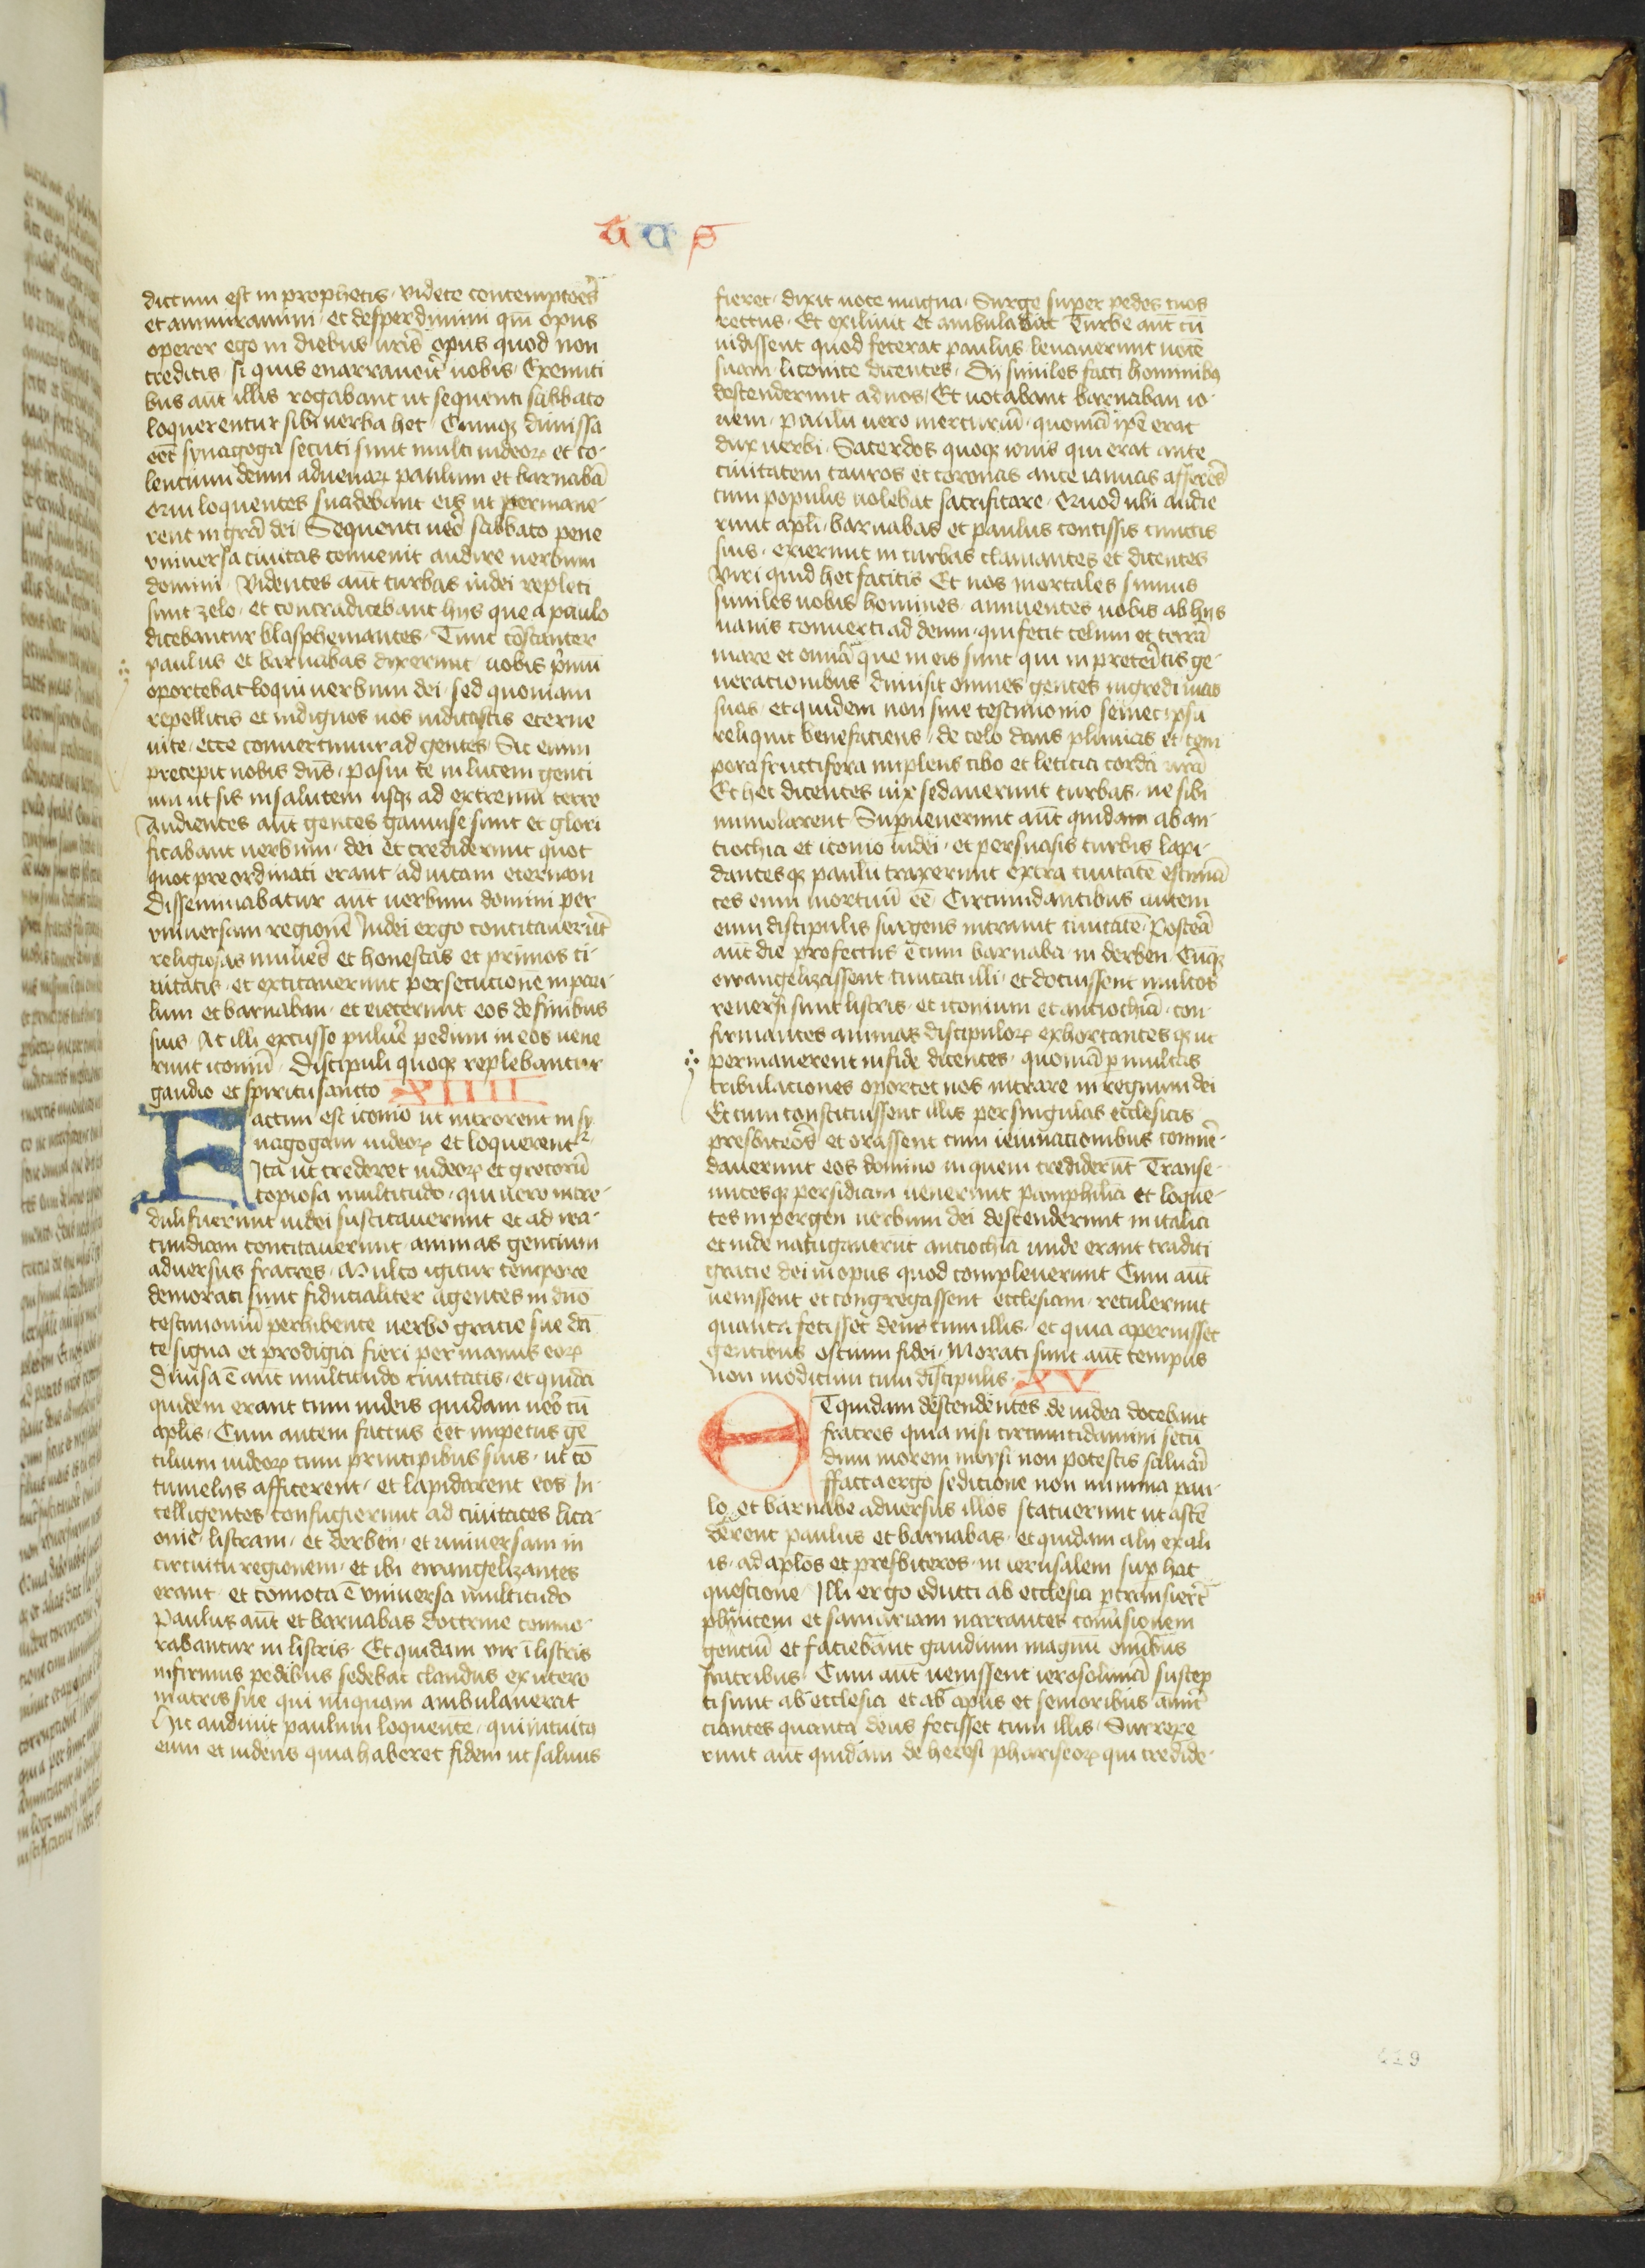 dictum est in prophetis · videte contemptoēs
et ammiramini · et desperdimini qm̄ opus
operor ego in diebus ur̄is opus quod non
creditis · si quis enarraueīt uobis · Exeunti
bus aūt illis rogabant ut sequenti sabbato
loquerentur sibi uerba hec · Cumqꝫ dimissa
eēt synagoga secuti sunt multi iudeoꝝ et co-
lencium deum aduenaꝝ paulum et barnabā
qui loquentes suadebant eis ut permane-
rent in grā dei · Sequenti ueo sabbato pene
vniuersa ciuitas conuenit audire uerbum
domini · Videntes aūt turbas iudei repleti
sunt zelo · et contradicebant hijs que a paulo
dicebantur blasphemantes · Tunc cōstanter
paulus et barnabas dixerunt uobis pͥmū
oportebat loqui uerbum dei · sed quoniam
repellitis et indignos uos iudicastis eterne
uite · ecce conuertimur ad gentes · Sic enim
precepit nobis dn̄s · posui te in lucem genti
um ut sis in salutem usqꝫ ad extremū terre
Audientes aūt gentes gauise sunt et glori
ficabant uerbum · dei et crediderunt quot
quot pre ordinati erant ad uitam eternam
Disseminabatur aūt uerbum domini per
vniuersam regionē Iudei ergo concitauerūt
religiosas mulieēs et honestas et primos ci-
uitatis · et excitauerunt persecucionē in pau
lum et barnaban · et eiecerunt eos de finibus
suis · At illi excusso puluēe pedum in eos uene
runt iconiū · Discipuli quoqꝫ replebantur
gaudio et spiritu sancto XIIII
Factum est iconio ut introrent in sy
nagogam iudeoꝝ et loquerent᷑
Ita ut crederet iudeoꝝ et grecorū
copiosa multitudo · qui uero incre-
duli fuerunt iudei suscitauerunt et ad ira-
cundiam concitauerunt animas gencium
aduersus fratres · Multo igitur tempore
demorati sunt fiducialiter agentes in dn̄o
testimoniū perhibente uerbo gracie sue dā
te signa et prodigia fieri per manus eoꝝ
Diuisa ē aūt multitudo ciuitatis · et quidā
quidem erant cum iudeis quidam ueo cū
aplis · Cum autem factus eēt impetus gē
tilium iudeoꝝ cum principibus suis · ut cō
tumelijs afficerent · et lapidarent eos In-
telligentes confugierunt ad ciuitates lica-
onie · listram · et derben · et uniuersam in
circuitu regionem · et ibi ewangelizantes
erant · et comota ē vniuersa multitudo
Paulus aūt et barnabas doctrine como-
rabantur in listris · Et quidam vir ī listris
infirmus pedibus sedebat claudus ex utero
matris sue qui nūquam ambulauerat
Hic audiuit paulum loquentē · qui intuitꝰ
eum et uidens quia haberet fidem ut saluus
ACS
fieret · dixit uoce magna · Surge super pedes tuos
rectus · Et exiliuit et ambulabat Turbe aūt cū
uidissent quod fecerat paulus leuauerunt uocē
suam liconice dicentes · Dij similes facti hominibꝫ
descenderunt ad nos · Et uocabant barnaban io-
uem · paulū uero mercuriū · quoniā ip̄e erat
dux uerbi · Sacerdos quoqꝫ iouis qui erat ante
ciuitatem tauros et coronas ante ianuas afferēs
cum populis uolebat sacrificare · Quod ubi audie
runt apli · barnabas et paulus concissis tunicis
suis · exierunt in turbas clamantes et dicentes
Viri quid hec facitis Et nos mortales sumus
similes uobis homines · annuentes uobis ab hijs
uanis conuerti ad deum · qui fecit celum et terrā
mare et omīa que in eis sunt qui in preteītis ge-
neracionibus dimisit omnes gentes ingredi uias
suas · et quidem non sine testimonio semet ipsū
reliquit benefaciens · de celo dans pluuias et tem
pora fructifera implens cibo et leticia corda ur̄a
Et hec dicentes uix sedauerunt turbas · ne sibi
immolarent Supuenerunt aūt quidam ab an-
tiochia et iconio iudei · et persuasis turbis lapi-
dantesqꝫ paulū traxerunt extra ciuitatē estimā
tes eum mortuū eē Circumdantibus autem
eum discipulis surgens intrauit ciuitatē · Posteā
aūt die profectus ē cum barnaba · in derben · Cūqꝫ
ewangelizassent ciuitati illi · et docuissent multos
reuersi sunt listris · et iconium et antiochiā · con-
firmantes animas discipuloꝝ exhortantesqꝫ ut
permanerent in fide dicentes · quoniā ꝑ multas
tribulaciones oportet nos intrare in regnum dei
Et cum constituissent illis per singulas ecclesias
presbiteōs et orassent cum ieiunacionibus comē-
dauerunt eos domino in quem crediderūt Transe-
untesqꝫ persidiam uenerunt pamphiliā et loque-
tes in pergen uerbum dei descenderunt in italia
et inde nauigauerūt antiochiā unde erant traditi
gracie dei in opus quod compleuerunt Cum aūt
uenissent et congregassent ecclesiam · retulerunt
quanta fecisset deus cum illis · et quia aperuisset
gentibus ostium fidei · Morati sunt aūt tempus
non modicum cum discipulis · XV
ET quidam descendentes de iudea docebant
fratres quia nisi circumcidamini secū
dum morem moysi non potestis saluari
ffacta ergo sedicione non minima pau-
lo et barnabe aduersus illos statuerunt ut ascē
derent paulus et barnabas · et quidam alij ex ali
is · ad aplos et presbiteros · in ierusalem suꝑ hac
questione Illi ergo educti ab ecclesia ꝑtransierūt
phenicem et samariam narrantes conūsionem
gentiū et faciebant gaudium magnū omībus
fratribus · Cum aūt uenissent ierosolimā suscep
ti sunt ab ecclesia et ab aplis et senioribus annū
ciantes quanta deus fecisset cum illis · Surrexe
runt aūt quidam de heresi phariseoꝝ qui credide-
419